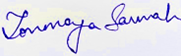 Tonmoya Sarmah